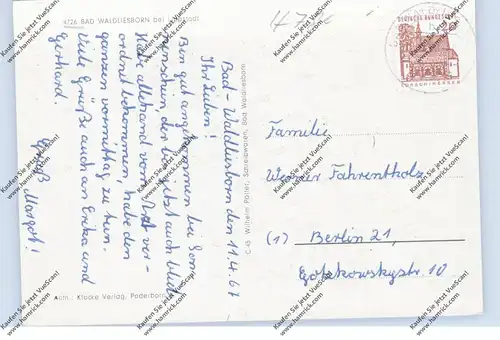 4726 BAD WALDLIESBORN bei
Bad-Waldliesborn den 11.4.67
Ihr Lieben!
Bin gut angekommen bei Sonn-
enschein der bis jetzt auch bleibt.
Habe allerhand vom Arzt ver-
ordnet bekommen, habe den
ganzen vormittag zu tun.
Viele Grüße auch an Erika und
Gerhard.
Gruß Margot!
Aufn.: Klocke Verlag, Paderborn
C 45 Wilhelm Pötter, Schreibwaren, Bad Waldliesborn
DEUTSCHE BUNDESPOST
LORSCH/HESSEN
Familie
Werner Fahrentholz
(1) Berlin 21,
Gotzkowskystr. 10
Kaufen Sie jetzt VueScan!
www.hamrick.com